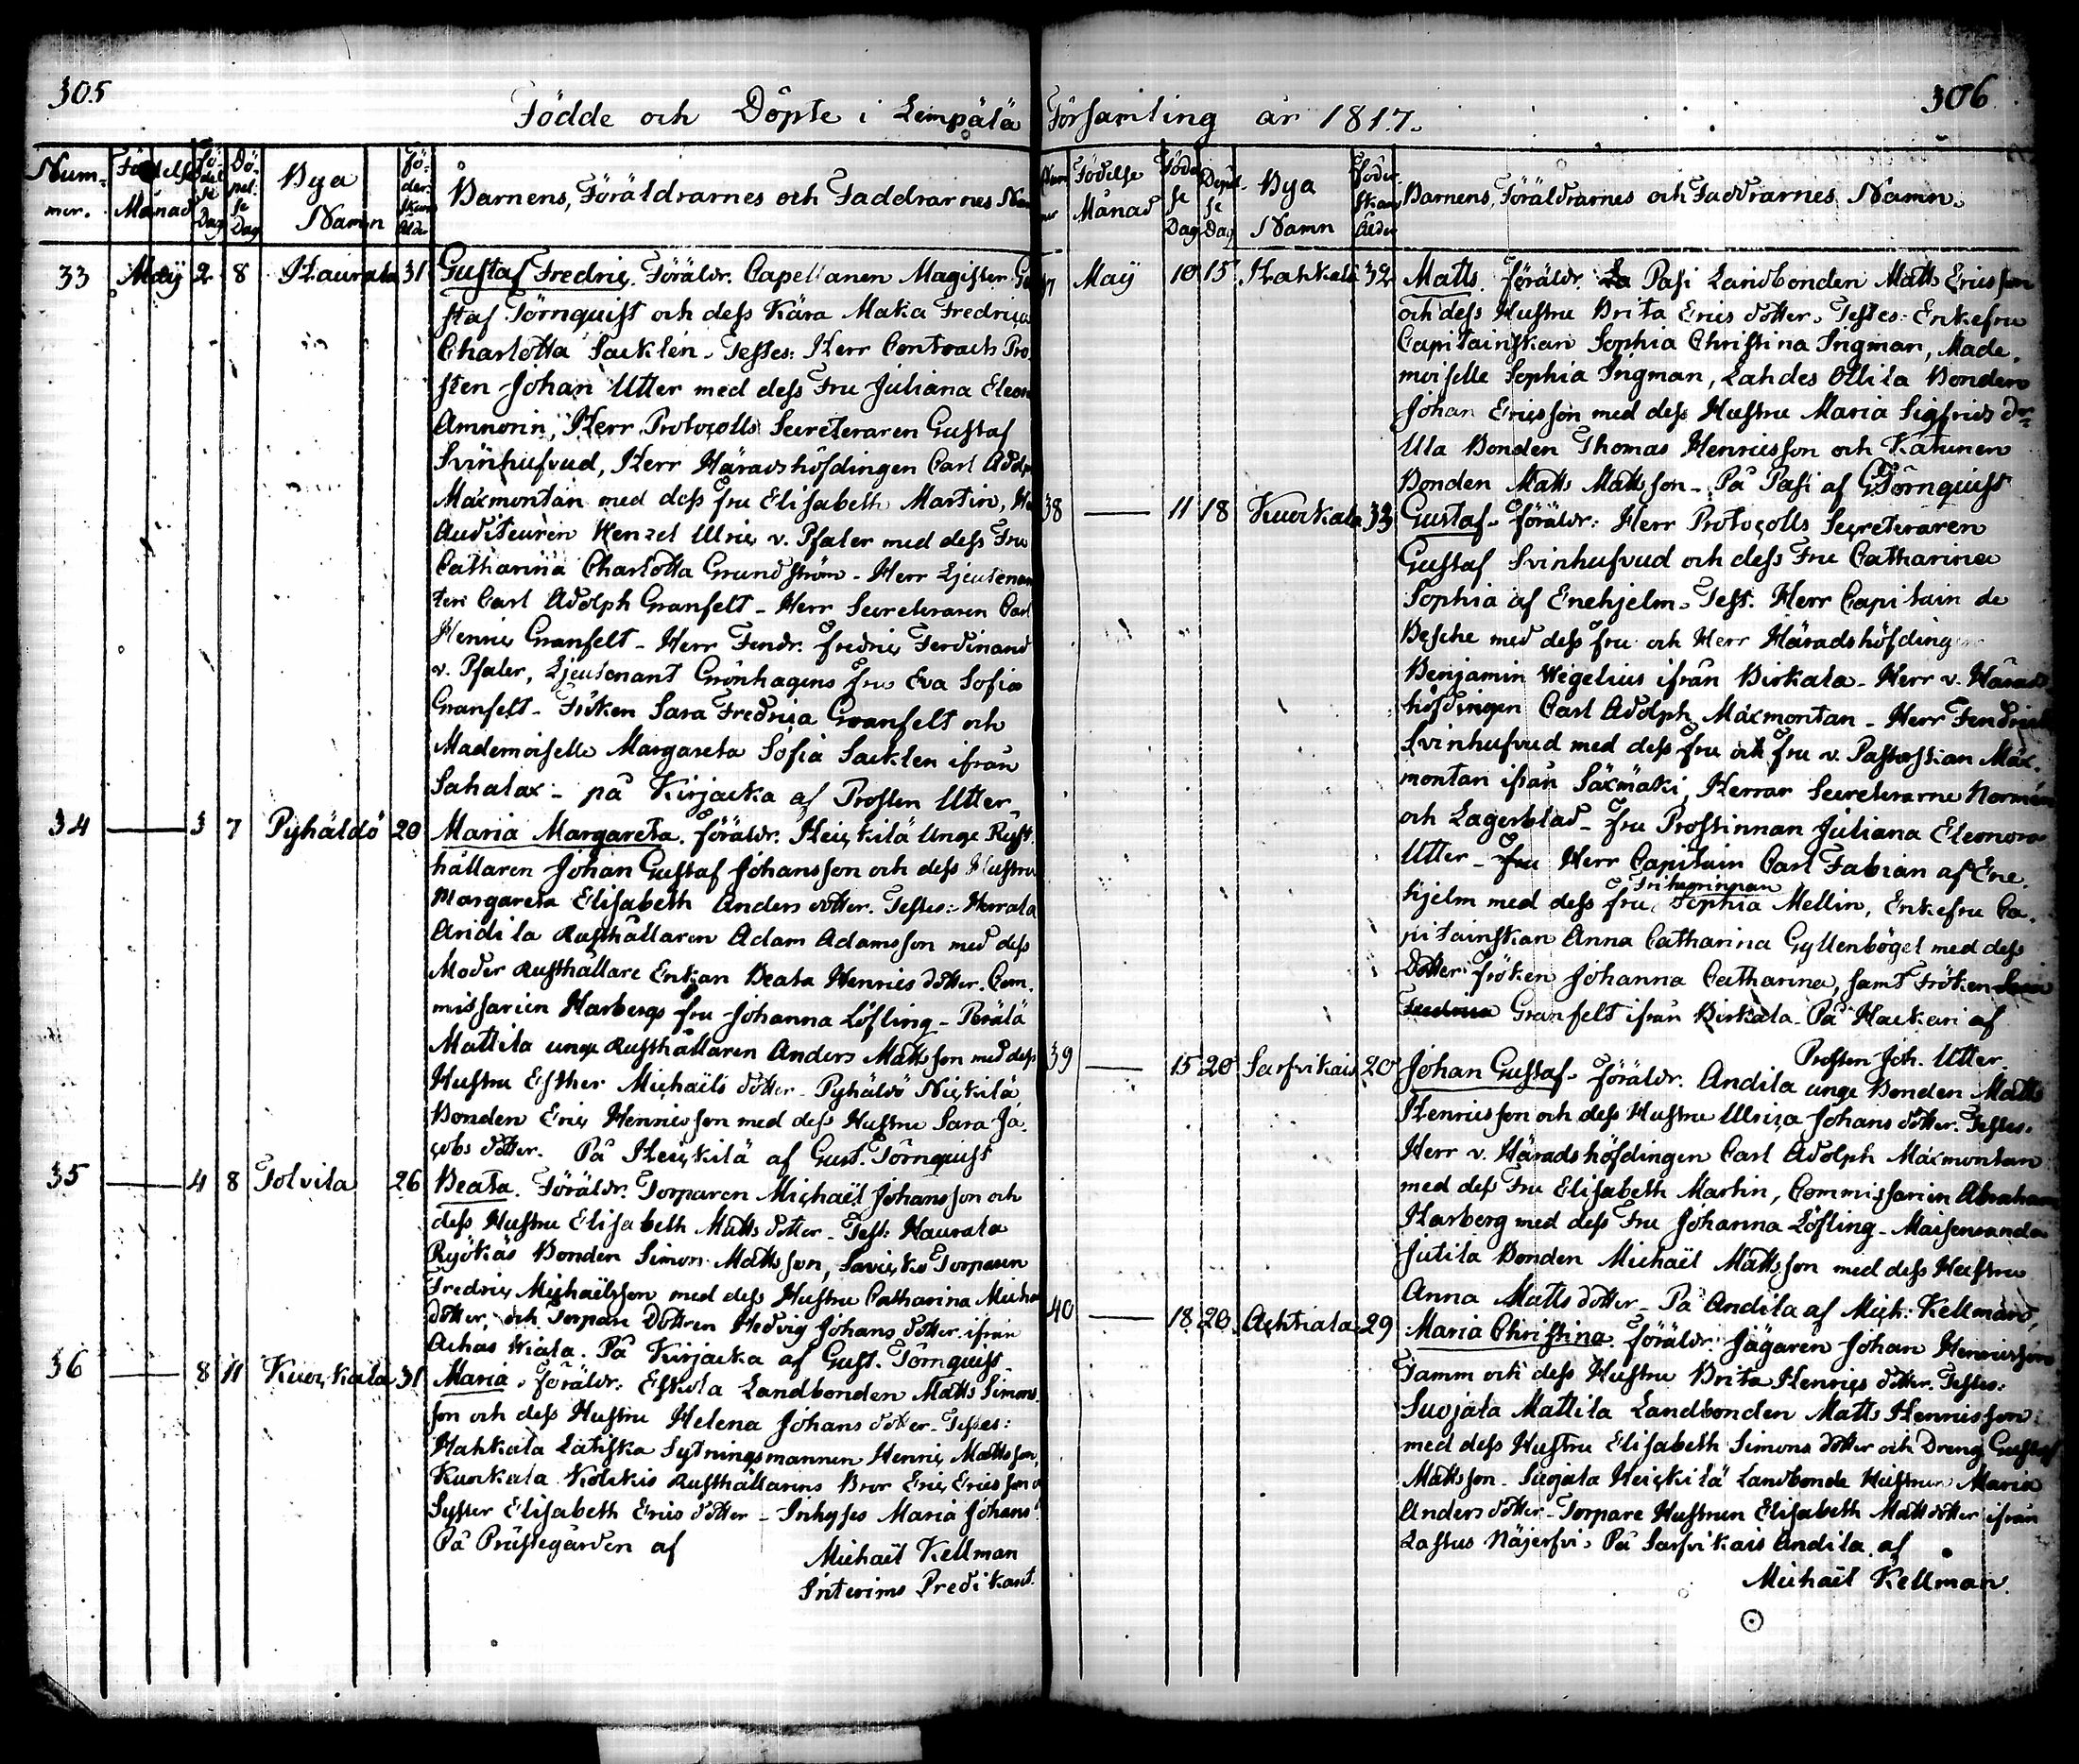 305
Födde och Döpte i Lempälä
Num-
mer.
Födelse
Månad
Fö-
del-
se
Dag
Dö-
pel-
se
Dag
Bya
Namn
Mo-
der-
skans
Ålder
Barnens, Föräldrarnes och Faddrarnes Nam
33 Maÿ 2 8 Haurala 31 Gustaf Fredric. Föräldr. Capellanen Magister Gu
staf Törnquist och dess Kära Maka Fredrica
Charlotta Sacklén. Testes: Herr Contracts Pro
sten Johan Utter med dess Fru Juliana Eleon
Amnorin, Herr Protocolls Secreteraren Gustaf
Svinhufvud, Herr Häradshöfdingen Carl Adolp
Maxmontan med dess fru Elisabeth Martin, He
Auditeuren Wenzel Ulric v. Pfaler med dess Fru
Catharina Charlotta Grundström - Herr Ljeutenan
ten Carl Adolph Granfelt - Herr Secreteraren Carl
Henric Granfelt - Herr Fendr. fredric Ferdinand
v. Pfaler, Ljeutenant Grönhagens fru Eva Sofia
Granfelt - Fröken Sara Fredrica Granfelt och
Mademoiselle Margareta Sofia Sacklen ifrån
Sahalax - på Kirjacka af Prosten Utter
34 3 7 Pyhäldö 20 Maria Margareta. föräldr. Heickilä Unge Rust
hållaren Johan Gustaf Johansson och dess Hustru
Margareta Elisabeth Anders dotter. Testes: Herrala
Andila Rusthållaren Adam Adamsson med dess
Moder Rusthållare Enkan Beata Henrics dotter. Com-
missarien Harbergs fru Johanna Löfling - Perälä
Mattila unge Rusthållaren Anders Mattsson med dess
Hustru Esther Michaëls dotter - Pyhäldö Nickilä
Bonden Eric Henricsson med dess Hustru Sara Ja-
cobs dotter. På Heickilä af Gust. Törnquist
35 4 8 Tolvila 26 Beata. Föräldr. Torparen Michaël Johansson och
dess Hustru Elisabeth Matts dotter - Test: Haurala
Ryökäs Bonden Simon Mattsson, Savicko Torparen
Fredric Michaëlsson med dess Hustru Catharina Micha
dotter, och Torpare Dottren Hedvig Johans dotter ifrån
Achas Kiala. På Kirjacka af Gust. Törnquist
36 8 11 Kuockala 31 Maria. föräldr: Eskola Landbonden Matts Simons
son och dess Hustru Helena Johans dotter - Testes:
Hahkala Latiska Sytningsmannen Henric Mattsson,
Kuokala Kolckis Rusthållarens Bror Eric Ericsson o
Syster Elisabeth Erics dotter - Inhyses Maria Johans
På Prästegården af Michaël Kellman
Interims Predikant.
306
Församling år 1817.
Num
mer
Födelse
Månad
Födel
se
Dag
Döpel-
se
Dag
Bya
Namn
Moder
skans
Ålder
Barnens, Föräldrarnes och Faddrarnes Namn.
37 Maÿ 10 15 Hahkala 32 Matts. föräldr. Pasi Landbonden Matts Ericsson
och dess Hustru Brita Erics dotter. Testes: Enkefru
Capitainskan Sophia Christina Ingman, Made-
moiselle Sophia Ingman, Lahdes Ollila Bonden
Johan Ericsson med dess Hustru Maria Sigfrids dr
Ula Bonden Thomas Henricsson och Katunen
Bonden Matts Mattsson - På Pasi af G. Törnquist
38 11 18 Kuockala 33 Gustaf. föräldr: Herr Protocolls Secreteraren
Gustaf Svinhufvud och dess Fru Catharina
Sophia af Enehjelm. Test. Herr Capitain de
Besche med dess fru och Herr Häradshöfding
Benjamin Wegelius ifrån Birkala - Herr v. Härads
höfdingen Carl Adolph Maxmontan - Herr Fendrick
Svinhufvud med dess fru och fru v. Pastorskan Max-
montan ifrån Säxmäki, Herrar Secreterarne Normén
och Lagerblad - fru Prostinnan Juliana Eleonora
Utter - fru Herr Capitain Carl Fabian af Ene-
hjelm med dess fru Friherrinnan Sophia Mellin, Enkefru Ca-
pitainskan Anna Catharina Gyllenbögel med dess
Dotter fröken Johanna Catharina, samt Fröken Sara
Fredrica Granfelt ifrån Birkala - På Hackari af
Prosten Joh. Utter
39 15 20 Sarfvikais 20 Johan Gustaf. föräldr. Andila unge Bonden Matts
Henricsson och dess Hustru Ulrica Johans dotter. Testes.
Herr v. Häradshöfdingen Carl Adolph Maxmontan
med dess Fru Elisabeth Martin, Commissarien Abraham
Harberg med dess Fru Johanna Löfling - Maisensanda
Jutila Bonden Michaël Mattsson med dess Hustru
Anna Matts dotter - På Andila af Mich: Kellman
40 18 20 Achtiala 29 Maria Christina. föräldr: Jägaren Johan Henricsson
Tamm och dess Hustru Brita Henrics dotter. Testes:
Suojala Mattila Landbonden Matts Henricsson
med dess Hustru Elisabeth Simons dotter och Dreng Gustaf
Mattsson - Suojala Heickilä Landbonde Hustrun Maria
Anders dotter - Torpare Hustrun Elisabeth Matts dotter ifrån
Lastus Näjerfvi. På Sarfvikais Andila af
Michaël Kellman.